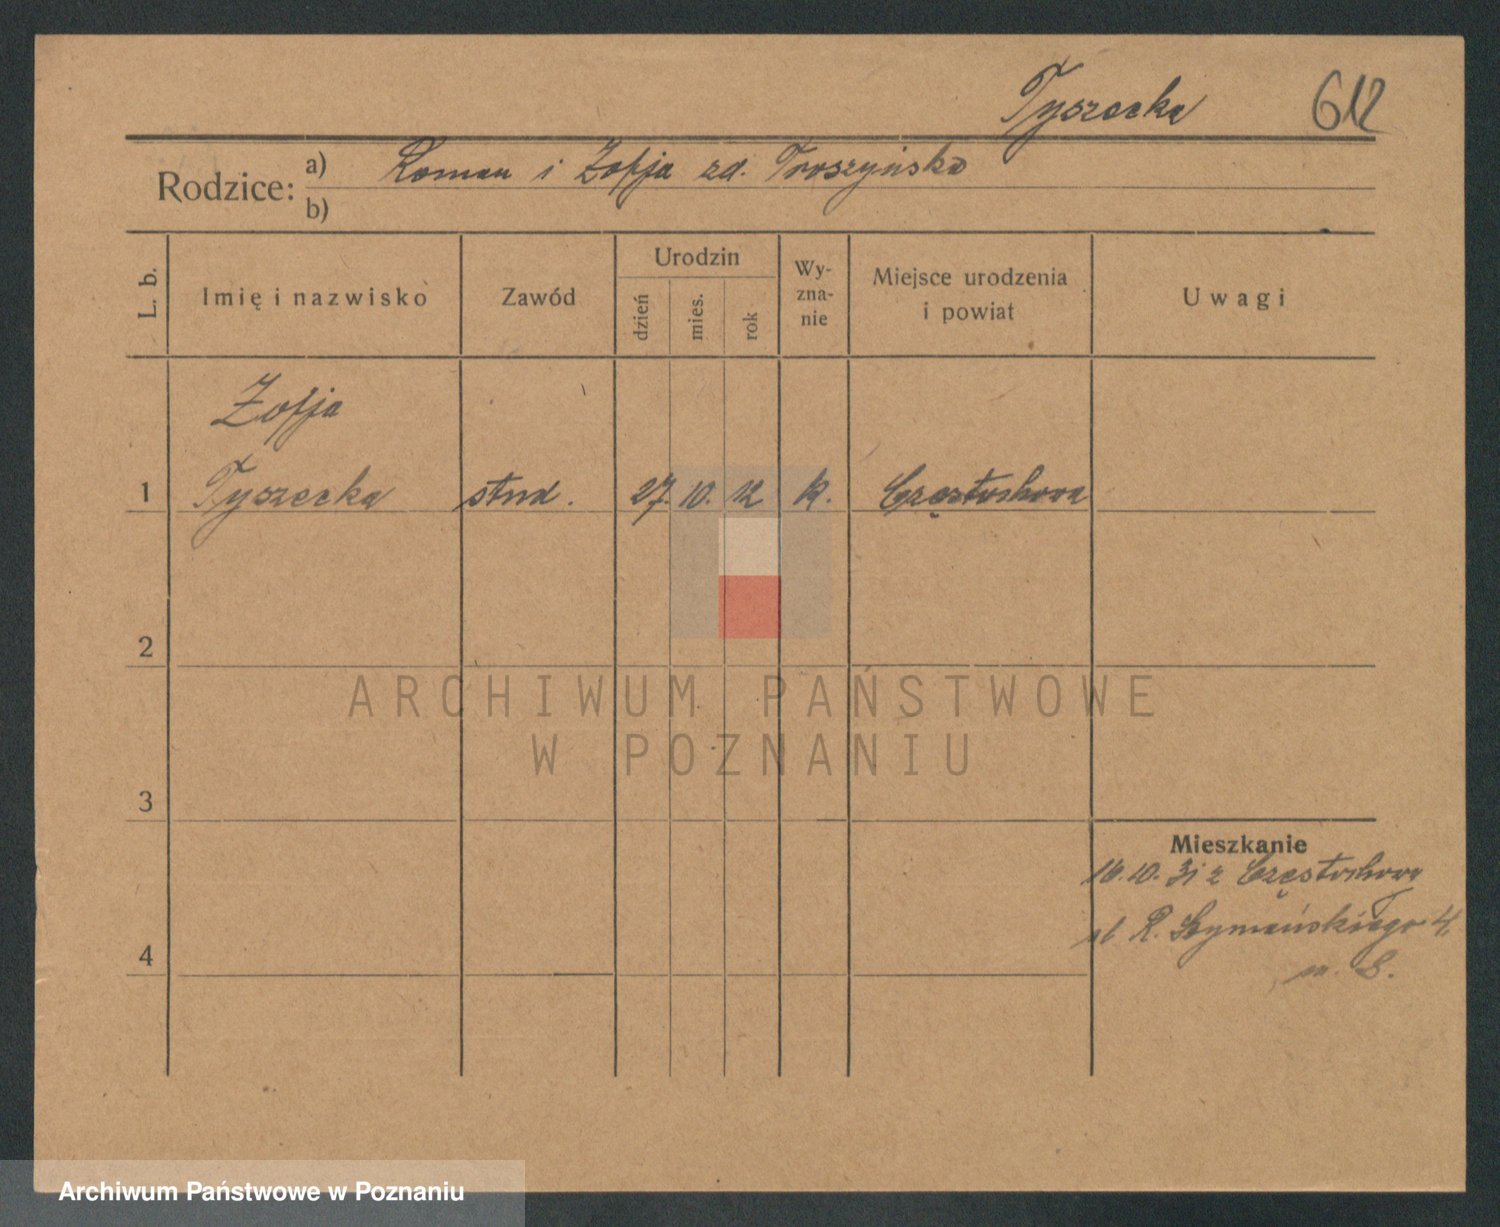 Tyszecka 612
Rodzice: a) Roman i Zofja zd. Troszyńska
b)
L. b. Imię i nazwisko Zawód Urodzin dzień mies. rok Wyzna-nie Miejsce urodzenia i powiat Uwagi
Zofja
1 Tyszecka stud. 27. 10. 12 k. Częstochowa
2
ARCHIWUM PAŃSTWOWE
W POZNANIU
3
Mieszkanie
16. 10. 31 z Częstochowa
R. Szymańskiego 4
4
m. 8.
Archiwum Państwowe w Poznaniu